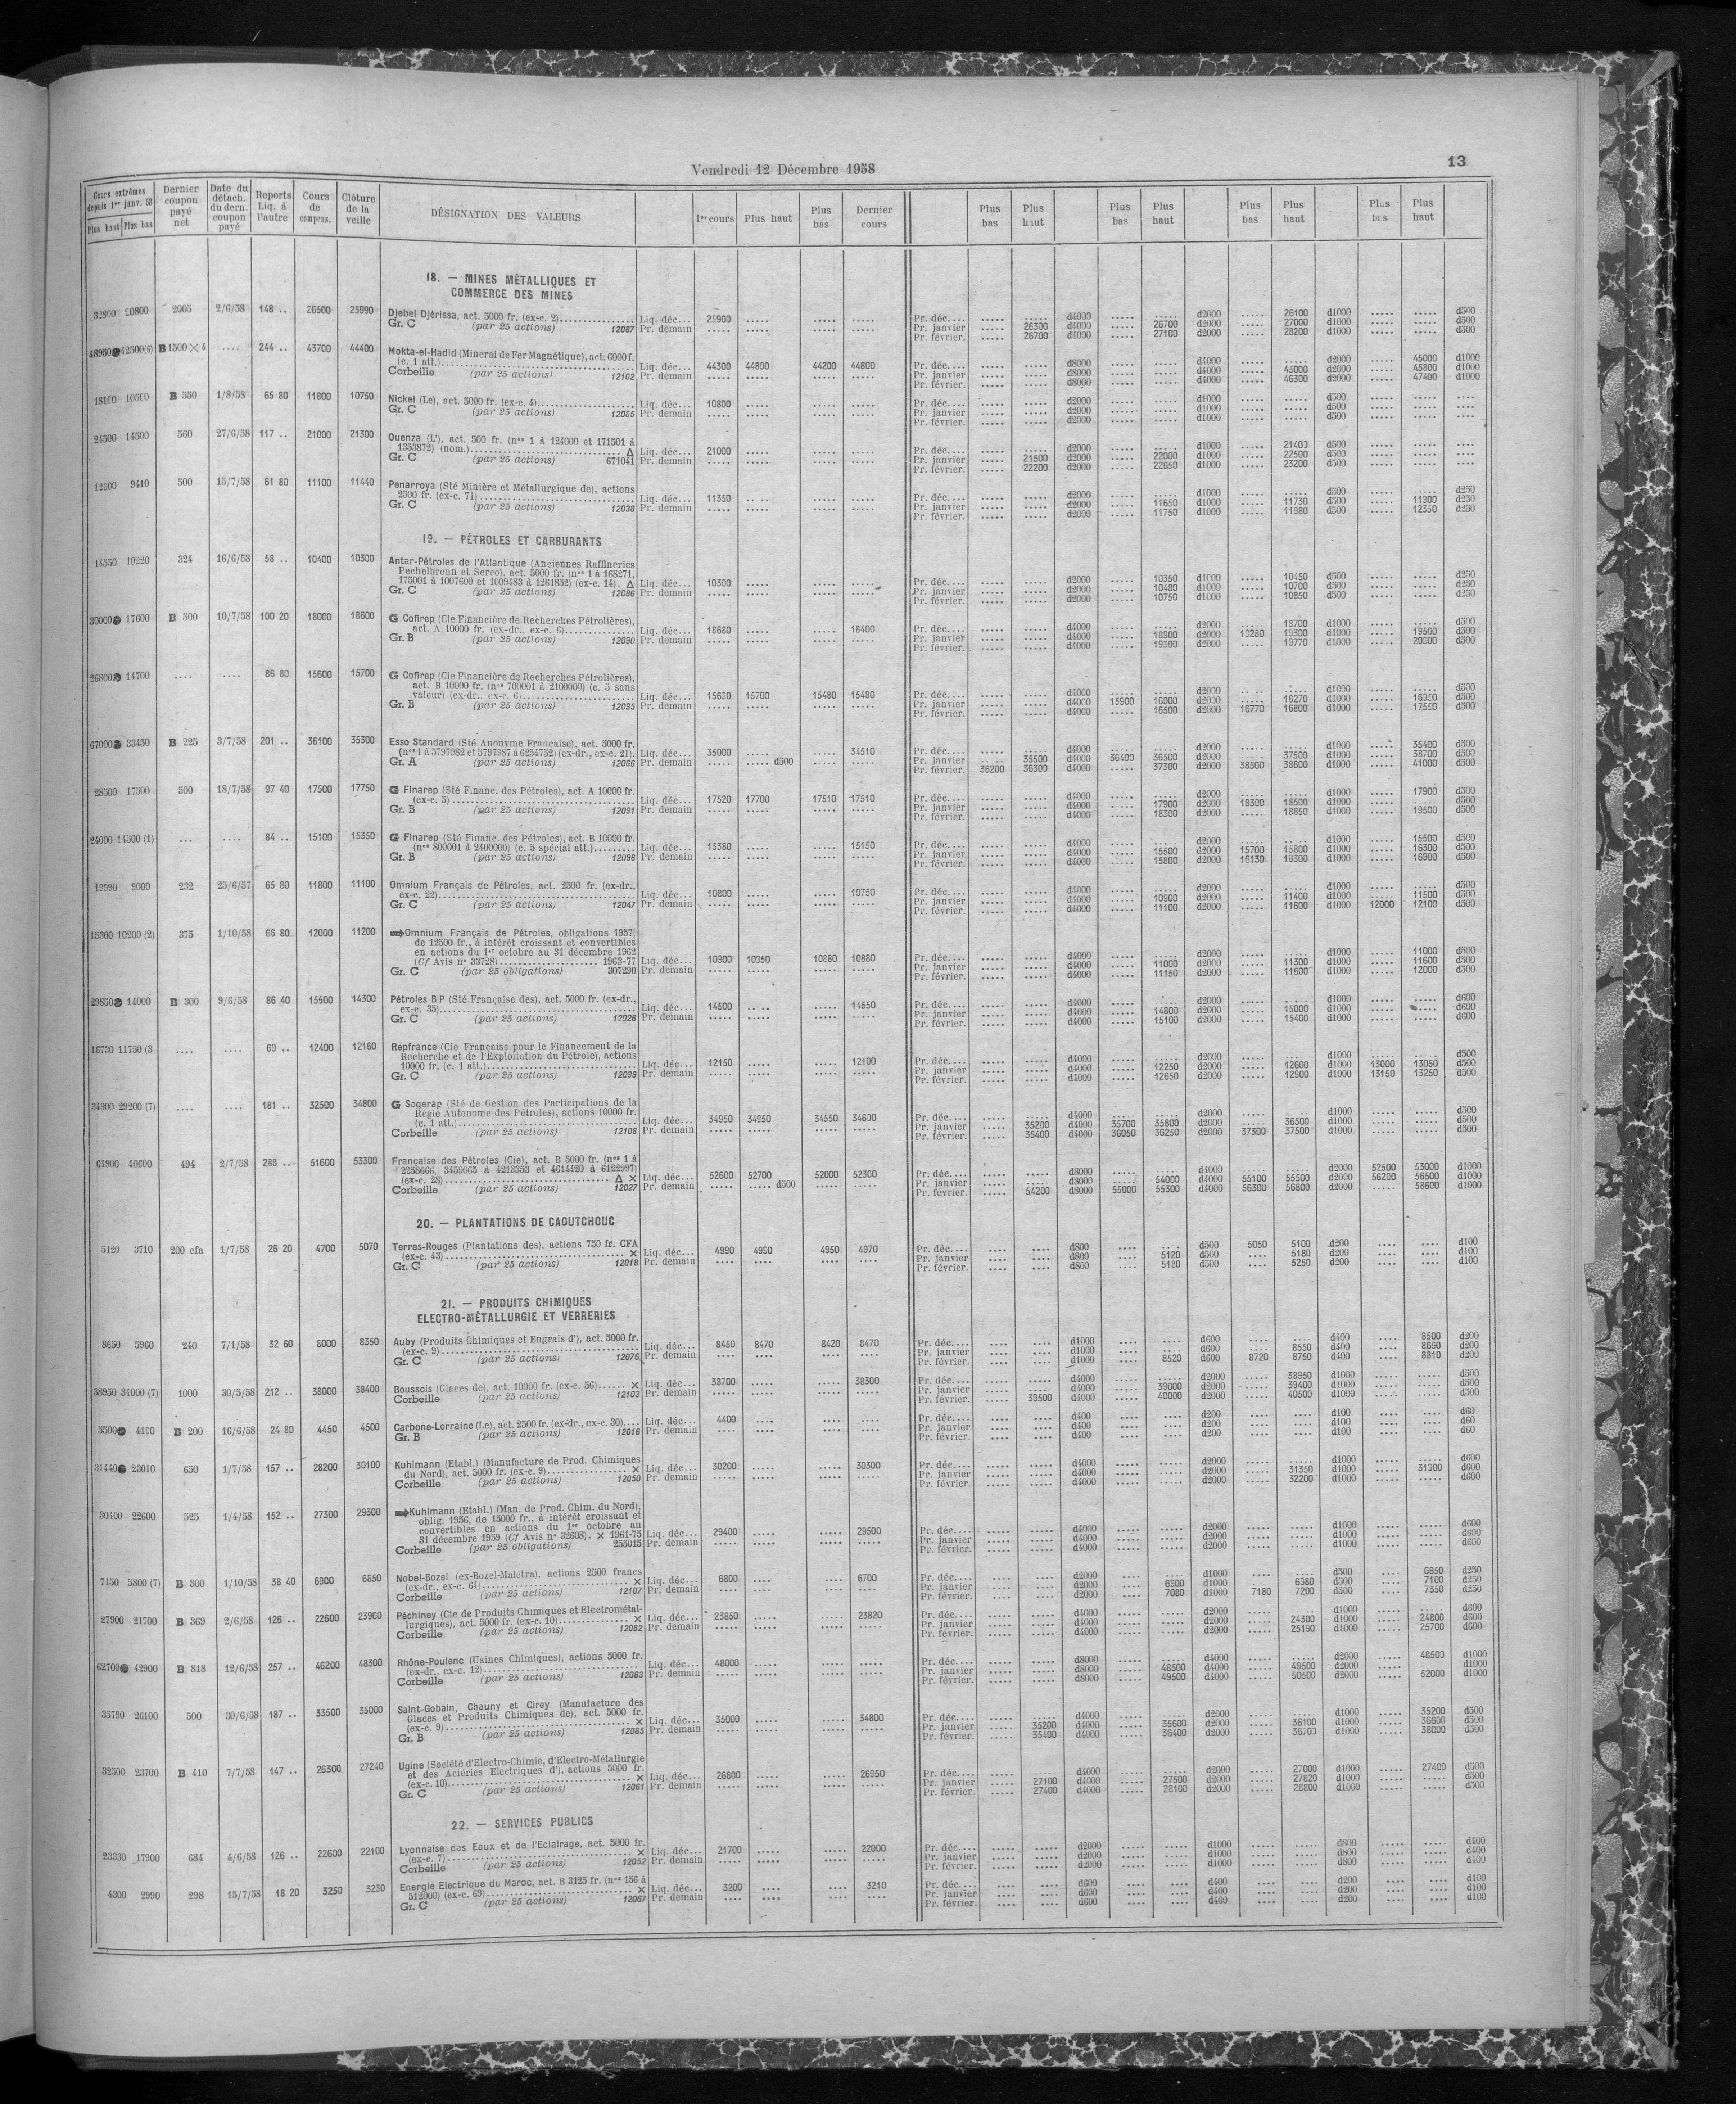 Vendredi 12 Décembre 1958
13
Cours extrêmes depuis 1er janv. 58
Plus haut Plus bas
Dernier coupon payé net
Date du détach. du dern. coupon payé
Reports Liq. à l'autre
Cours de compens.
Clôture de la veille
DÉSIGNATION DES VALEURS
1er cours
Plus haut
Plus bas
Dernier cours
Plus bas
Plus haut
Plus bas
Plus haut
Plus bas
Plus haut
Plus bas
Plus haut
18. — MINES MÉTALLIQUES ET
COMMERCE DES MINES
2/6/58 148 .. 26500 25990 Djebel Djérissa, act. 5000 fr. (ex-c. 2) Liq. déc... 25900
Gr. C (par 25 actions) 12087 Pr. demain
Pr. déc.... d4000 d2000 26100 d1000 d500
Pr. janvier 26300 d4000 26700 d2000 27000 d1000 d500
Pr. février. 26700 d4000 27100 d2000 28200 d1000 d500
B 1500 × 4 .... 244 .. 43700 44400 Mokta-el-Hadid (Minerai de Fer Magnétique), act. 6000 f.
(c. 1 att.) Liq. déc... 44300 44800 44200 44800
Corbeille (par 25 actions) 12102 Pr. demain
Pr. déc.... d8000 d4000 d2000 45000 d1000
Pr. janvier d8000 d4000 45000 d2000 45800 d1000
Pr. février. d8000 d4000 46300 d2000 47400 d1000
B 550 1/8/58 65 80 11800 10750 Nickel (Le), act. 5000 fr. (ex-c. 4) Liq. déc... 10800
Gr. C (par 25 actions) 12085 Pr. demain
Pr. déc.... d2000 d1000 d500
Pr. janvier d2000 d1000 d500
Pr. février. d2000 d1000 d500
24500 14500 560 27/6/58 117 .. 21000 21300 Ouenza (L'), act. 500 fr. (nos 1 à 124000 et 171501 à
1353872) (nom.) Δ Liq. déc... 21000
Gr. C (par 25 actions) 671041 Pr. demain
Pr. déc.... d2000 d1000 21400 d500
Pr. janvier 21500 d2000 22000 d1000 22500 d500
Pr. février. 22200 d2000 22650 d1000 23200 d500
12600 9410 500 15/7/58 61 80 11100 11440 Penarroya (Sté Minière et Métallurgique de), actions
2500 fr. (ex-c. 71) Liq. déc... 11350
Gr. C (par 25 actions) 12038 Pr. demain
Pr. déc.... d2000 d1000 d500 d250
Pr. janvier d2000 11650 d1000 11730 d500 11900 d250
Pr. février. d2000 11750 d1000 11980 d500 12350 d250
19. — PÉTROLES ET CARBURANTS
14350 10220 324 16/6/58 58 .. 10400 10300 Antar-Pétroles de l'Atlantique (Anciennes Raffineries
Pechelbronn et Serco), act. 5000 fr. (nos 1 à 168271,
175001 à 1007600 et 1009483 à 1261852) (ex-c. 14). Δ Liq. déc... 10300
Gr. C (par 25 actions) 12086 Pr. demain
Pr. déc.... d2000 10350 d1000 10450 d500 d250
Pr. janvier d2000 10480 d1000 10700 d500 d250
Pr. février. d2000 10750 d1000 10850 d500 d250
17600 B 500 10/7/58 100 20 18000 18600 G Cofirep (Cie Financière de Recherches Pétrolières),
act. A 10000 fr. (ex-dr., ex-c. 6) Liq. déc... 18680 18400
Gr. B (par 25 actions) 12090 Pr. demain
Pr. déc.... d4000 d2000 18700 d1000 d500
Pr. janvier d4000 18900 d2000 19300 d1000 19500 d500
Pr. février. d4000 19300 d2000 19770 d1000 d500
14700 .... .... 86 80 15600 15700 G Cofirep (Cie Financière de Recherches Pétrolières),
act. B 10000 fr. (nos 700001 à 2100000) (c. 5 sans
valeur) (ex-dr., ex-c. 6) Liq. déc... 15680 15700 15480 15480
Gr. B (par 25 actions) 12095 Pr. demain
Pr. déc.... d4000 d2000 d1000 d500
Pr. janvier d4000 15900 16000 d2000 16270 d1000 d500
Pr. février. d4000 16500 d2000 16770 16800 d1000 17550 d500
67000 33450 B 225 3/7/58 201 .. 36100 35300 Esso Standard (Sté Anonyme Française), act. 5000 fr.
(nos 1 à 5797982 et 5797987 à 6254752) (ex-dr., ex-c. 21). Liq. déc... 35000 34510
Gr. A (par 25 actions) 12066 Pr. demain d500
Pr. déc.... d4000 d2000 d1000 35400 d500
Pr. janvier 35500 d4000 36400 36500 d2000 37500 d1000 38700 d500
Pr. février. 36200 36300 d4000 37300 d2000 38500 38600 d1000 41000 d500
28500 17500 500 18/7/58 97 40 17500 17750 G Finarep (Sté Financ. des Pétroles), act. A 10000 fr.
(ex-c. 5) Liq. déc... 17520 17700 17510 17510
Gr. B (par 25 actions) 12091 Pr. demain
Pr. déc.... d4000 d2000 d1000 17900 d500
Pr. janvier d4000 17900 d2000 18300 18500 d1000 d500
Pr. février. d4000 18300 d2000 18850 d1000 19500 d500
24000 14500 (1) ... .... 84 .. 15100 15350 G Finarep (Sté Financ. des Pétroles), act. B 10000 fr.
(nos 800001 à 2400000) (c. 5 spécial att.) Liq. déc... 15380 15150
Gr. B (par 25 actions) 12096 Pr. demain
Pr. déc.... d4000 d2000 d1000 15500 d500
Pr. janvier d4000 15500 d2000 15700 15800 d1000 16300 d500
Pr. février. d4000 15800 d2000 16130 16300 d1000 16900 d500
9000 232 25/6/57 65 80 11800 11100 Omnium Français de Pétroles, act. 2500 fr. (ex-dr.,
ex-c. 22) Liq. déc... 10800 10750
Gr. C (par 25 actions) 12047 Pr. demain
Pr. déc.... d4000 d2000 d1000 d500
Pr. janvier d4000 10900 d2000 11400 d1000 11500 d500
Pr. février. d4000 11100 d2000 11600 d1000 12000 12100 d500
15300 10200 (2) 375 1/10/58 66 80 12000 11200 Omnium Français de Pétroles, obligations 1957,
de 12500 fr., à intérêt croissant et convertibles
en actions du 1er octobre au 31 décembre 1962
(Cf Avis n° 33728) 1963-77 Liq. déc... 10900 10950 10880 10880
Gr. C (par 25 obligations) 307290 Pr. demain
Pr. déc.... d4000 d2000 d1000 11000 d500
Pr. janvier d4000 11000 d2000 11300 d1000 11600 d500
Pr. février. d4000 11150 d2000 11600 d1000 12000 d500
29850 14000 B 300 9/6/58 86 40 15500 14300 Pétroles B P (Sté Française des), act. 5000 fr. (ex-dr.,
ex-c. 35) Liq. déc... 14500 14550
Gr. C (par 25 actions) 12026 Pr. demain
Pr. déc.... d4000 d2000 d1000 d600
Pr. janvier d4000 14800 d2000 15000 d1000 d600
Pr. février. d4000 15100 d2000 15400 d1000 d600
16730 11750 (3 .... .... 69 .. 12400 12160 Repfrance (Cie Française pour le Financement de la
Recherche et de l'Exploitation du Pétrole), actions
10000 fr. (c. 1 att.) Liq. déc... 12150 12100
Gr. C (par 25 actions) 12099 Pr. demain
Pr. déc.... d4000 d2000 d1000 d500
Pr. janvier d4000 12250 d2000 12600 d1000 13000 13050 d500
Pr. février. d4000 12650 d2000 12900 d1000 13150 13250 d500
34900 29200 (7) .... .... 181 .. 32500 34800 G Sogerap (Sté de Gestion des Participations de la
Régie Autonome des Pétroles), actions 10000 fr.
(c. 1 att.) Liq. déc... 34950 34950 34550 34600
Corbeille (par 25 actions) 12108 Pr. demain
Pr. déc.... d4000 d2000 d1000 d500
Pr. janvier 35200 d4000 35700 35800 d2000 36500 d1000 d500
Pr. février. 35400 d4000 36050 36250 d2000 37300 37500 d1000 d500
40600 494 2/7/58 283 .. 51600 53300 Française des Pétroles (Cie), act. B 5000 fr. (nos 1 à
2258666, 3459065 à 4213353 et 4614420 à 6122997)
(ex-c. 28) Δ × Liq. déc... 52600 52700 52000 52300
Corbeille (par 25 actions) 12027 Pr. demain d500
Pr. déc.... d8000 d4000 d2000 52500 53000 d1000
Pr. janvier d8000 54000 d4000 55100 55500 d2000 56200 56500 d1000
Pr. février. 54200 d8000 55000 55300 d4000 56300 56800 d2000 58600 d1000
20. — PLANTATIONS DE CAOUTCHOUC
5120 3710 200 cfa 1/7/58 26 20 4700 5070 Terres-Rouges (Plantations des), actions 750 fr. CFA
(ex-c. 43) × Liq. déc... 4990 4990 4950 4970
Gr. C (par 25 actions) 12018 Pr. demain
Pr. déc.... d800 d500 5050 5100 d200 d100
Pr. janvier d800 5120 d500 5180 d200 d100
Pr. février. d800 d500 5250 d200 d100
21. — PRODUITS CHIMIQUES
ELECTRO-MÉTALLURGIE ET VERRERIES
8650 5960 240 7/1/58 32 60 8000 8350 Auby (Produits Chimiques et Engrais d'), act. 5000 fr.
(ex-c. 9) Liq. déc... 8450 8470 8420 8470
Gr. C (par 25 actions) 12076 Pr. demain
Pr. déc.... d1000 d600 d400 8500 d200
Pr. janvier d1000 d600 8550 d400 8690 d200
Pr. février. d1000 8520 d600 8720 8750 d400 8810 d200
38950 34000 (7) 1000 30/5/58 212 .. 38000 38400 Boussois (Glaces de), act. 10000 fr. (ex-c. 56) × Liq. déc... 38700 38300
Corbeille (par 25 actions) 12103 Pr. demain
Pr. déc.... d4000 d2000 38950 d1000 d500
Pr. janvier d4000 39000 d2000 39400 d1000 d500
Pr. février. 39500 d4000 40000 d2000 40500 d1000 d500
4100 B 200 16/6/58 24 80 4450 4500 Carbone-Lorraine (Le), act. 2500 fr. (ex-dr., ex-c. 30) Liq. déc... 4400
Gr. B (par 25 actions) 12016 Pr. demain
Pr. déc.... d400 d200 d100 d60
Pr. janvier d400 d200 d100 d60
Pr. février. d400 d200 d100 d60
31440 23010 650 1/7/58 157 .. 28200 30100 Kuhlmann (Etabl.) (Manufacture de Prod. Chimiques
du Nord), act. 5000 fr. (ex-c. 9) × Liq. déc... 30200 30300
Corbeille (par 25 actions) 12050 Pr. demain
Pr. déc.... d4000 d2000 d1000 d600
Pr. janvier d4000 d2000 31350 d1000 31900 d600
Pr. février. d4000 d2000 32200 d1000 d600
30400 22600 525 1/4/58 152 .. 27300 29500 Kuhlmann (Etabl.) (Man. de Prod. Chim. du Nord),
oblig. 1956, de 15000 fr., à intérêt croissant et
convertibles en actions du 1er octobre au
31 décembre 1959 (Cf Avis n° 32608). × 1961-75 Liq. déc... 29400 29500
Corbeille (par 25 obligations) 255015 Pr. demain
Pr. déc.... d4000 d2000 d1000 d600
Pr. janvier d4000 d2000 d1000 d600
Pr. février. d4000 d2000 d1000 d600
7150 5800 (7) B 300 1/10/58 38 40 6900 6850 Nobel-Bozel (ex-Bozel-Malétra), actions 2500 francs
(ex-dr., ex-c. 61) × Liq. déc... 6800 6700
Corbeille (par 25 actions) 12107 Pr. demain
Pr. déc.... d2000 d1000 d500 6850 d250
Pr. janvier d2000 6900 d1000 6980 d500 7100 d250
Pr. février. d2000 7080 d1000 7180 7200 d500 7350 d250
27900 21700 B 369 2/6/58 126 .. 22600 23900 Péchiney (Cie de Produits Chimiques et Electrométal-
lurgiques), act. 5000 fr. (ex-c. 10) × Liq. déc... 23850 23820
Corbeille (par 25 actions) 12062 Pr. demain
Pr. déc.... d4000 d2000 d1000 d600
Pr. janvier d4000 d2000 24300 d1000 24800 d600
Pr. février. d4000 d2000 25150 d1000 25700 d600
62700 42900 B 818 12/6/58 257 .. 46200 48300 Rhône-Poulenc (Usines Chimiques), actions 5000 fr.
(ex-dr., ex-c. 12) Liq. déc... 48000
Corbeille (par 25 actions) 12063 Pr. demain
Pr. déc.... d8000 d4000 d2000 48500 d1000
Pr. janvier d8000 48500 d4000 49500 d2000 d1000
Pr. février. d8000 49500 d4000 50500 d2000 52000 d1000
35790 26100 500 30/6/58 187 .. 33500 35000 Saint-Gobain, Chauny et Cirey (Manufacture des
Glaces et Produits Chimiques de), act. 5000 fr.
(ex-c. 9) × Liq. déc... 35000 34800
Gr. B (par 25 actions) 12065 Pr. demain
Pr. déc.... d4000 d2000 d1000 35200 d500
Pr. janvier 35200 d4000 35600 d2000 36100 d1000 36600 d500
Pr. février. 35400 d4000 36400 d2000 d1000 38000 d500
32500 23700 B 410 7/7/58 147 .. 26300 27240 Ugine (Société d'Electro-Chimie, d'Electro-Métallurgie
et des Aciéries Electriques d'), actions 5000 fr.
(ex-c. 10) × Liq. déc... 26800 26950
Gr. C (par 25 actions) 12061 Pr. demain
Pr. déc.... d4000 d2000 27000 d1000 27400 d500
Pr. janvier 27100 d4000 27500 d2000 27820 d1000 d500
Pr. février. 27400 d4000 28100 d2000 28800 d1000 d500
22. — SERVICES PUBLICS
23330 17900 684 4/6/58 126 .. 22600 22100 Lyonnaise des Eaux et de l'Eclairage, act. 5000 fr.
(ex-c. 7) × Liq. déc... 21700 22000
Corbeille (par 25 actions) 12052 Pr. demain
Pr. déc.... d2000 d1000 d800 d400
Pr. janvier d2000 d1000 d800 d400
Pr. février. d2000 d1000 d800 d400
4300 2990 298 15/7/58 18 20 3250 3230 Energie Electrique du Maroc, act. B 3125 fr. (nos 156 à
512000) (ex-c. 69) × Liq. déc... 3200 3210
Gr. C (par 25 actions) 12067 Pr. demain
Pr. déc.... d600 d400 d200 d100
Pr. janvier d600 d400 d200 d100
Pr. février. d600 d400 d200 d100